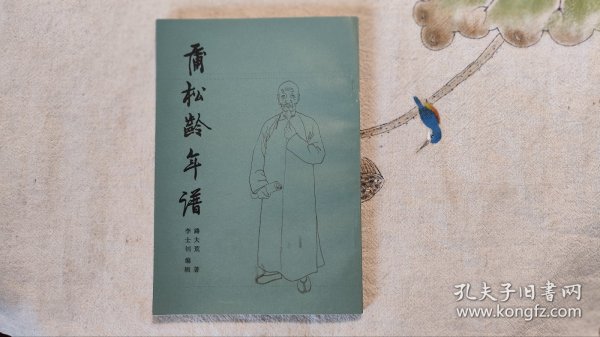 蒲松龄年谱
路大荒 著
李士钊 编辑
孔夫子旧书网
www.kongfz.com